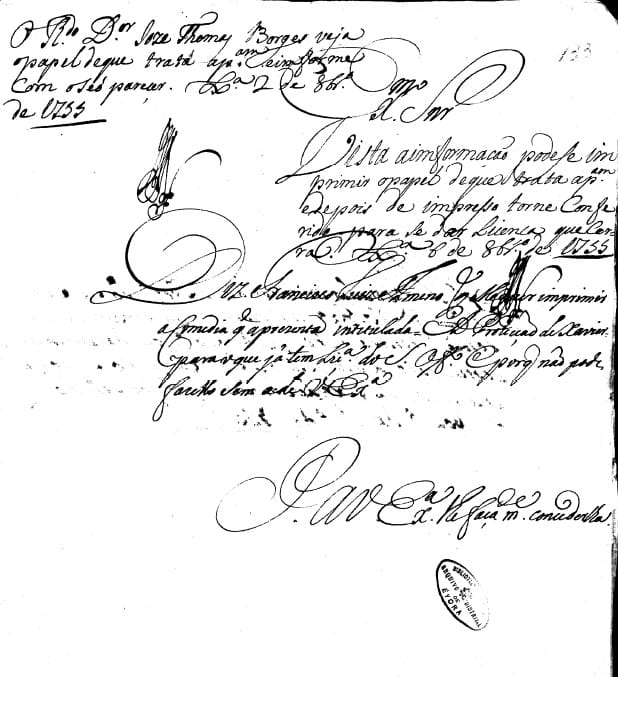 O R.do D.or Joze Thomas Borges veja
o papel de que trata a p.am e imforme
Com o seo parecer. Lx.a 2 de 8br.o
de 1755
133
Ex.mo
R. Snr
Vista a imformacaõ podese im
primir o papel de que trata a p.am
e depois de impresso torne Confe
rido para se dar Licença que Cor
ra. Lx.a 6 de 8br.o de 1755
Diz Francisco Luiz Ameno q̃ elle quer imprimir
a Comedia q̃ apresenta intitulada A Proteçaõ de Xavier
para o que já tem Lic.a do S. Off.o E porq̃ naõ pode
fazello sem a de V. Ex.a
P. a V Ex.a lhe faça m.ce concederlha
BIBLIOTECA
E
ARQUIVO DISTRITAL
DE
ÉVORA